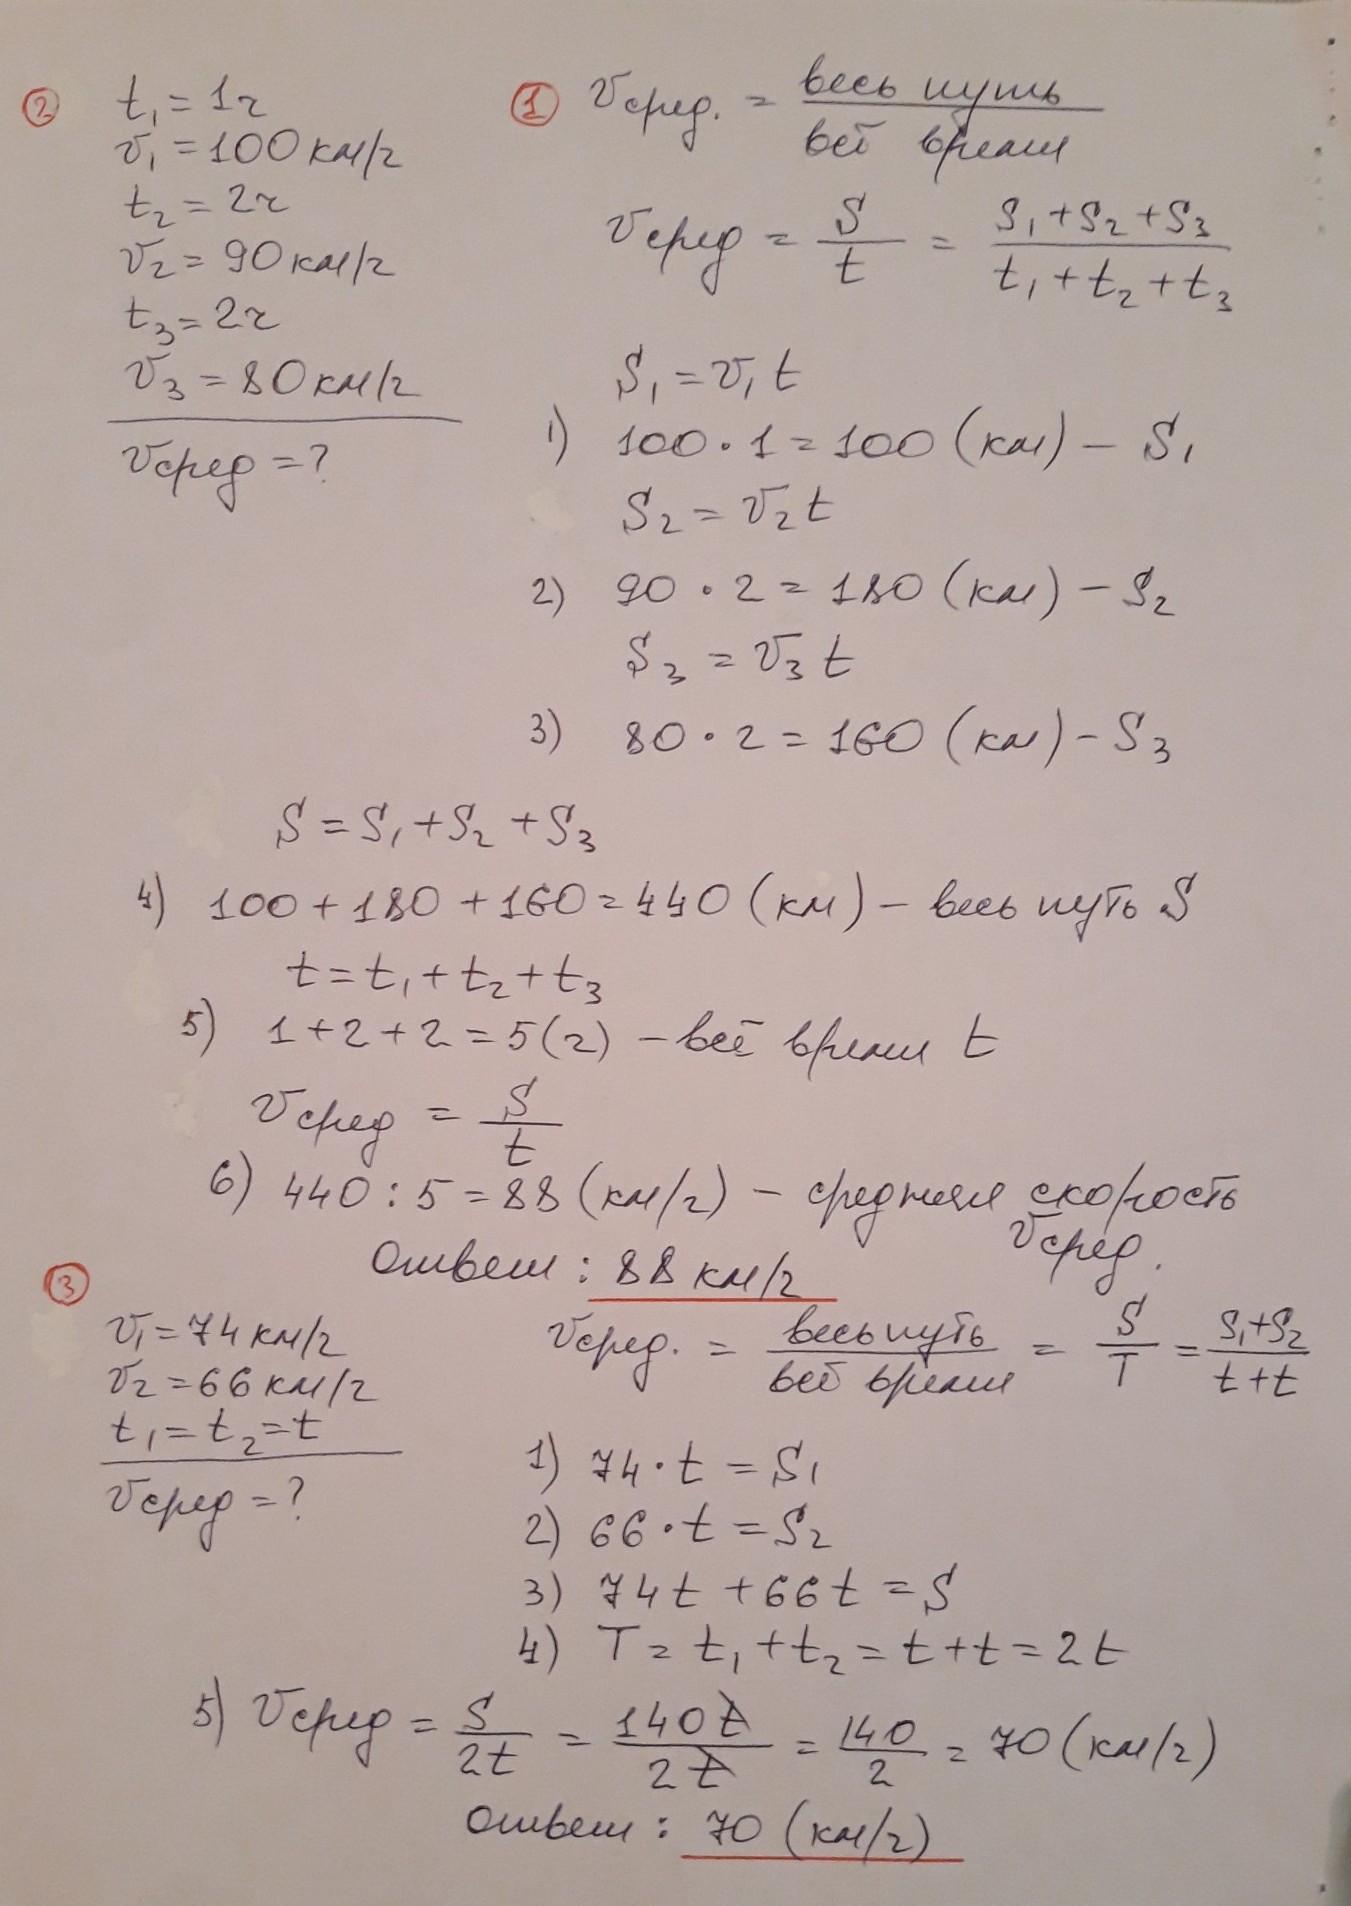 ② t₁ = 1ч
v₁ = 100 км/ч
t₂ = 2ч
v₂ = 90 км/ч
t₃ = 2ч
v₃ = 80 км/ч
vсред = ?
① vсред. = весь путь / всё время
vсред = S/t = (S₁ + S₂ + S₃)/(t₁ + t₂ + t₃)
S₁ = v₁ t
1) 100 · 1 = 100 (км) – S₁
S₂ = v₂ t
2) 90 · 2 = 180 (км) – S₂
S₃ = v₃ t
3) 80 · 2 = 160 (км) – S₃
S = S₁ + S₂ + S₃
4) 100 + 180 + 160 = 440 (км) – весь путь S
t = t₁ + t₂ + t₃
5) 1 + 2 + 2 = 5 (ч) – всё время t
vсред = S/t
6) 440 : 5 = 88 (км/ч) – средняя скорость
vсред.
Ответ : 88 км/ч
③
v₁ = 74 км/ч
v₂ = 66 км/ч
t₁ = t₂ = t
vсред = ?
vсред. = весь путь / всё время = S/T = (S₁+S₂)/(t+t)
1) 74 · t = S₁
2) 66 · t = S₂
3) 74t + 66t = S
4) T = t₁ + t₂ = t + t = 2t
5) vсред = S/2t = 140t/2t = 140/2 = 70 (км/ч)
Ответ : 70 (км/ч)